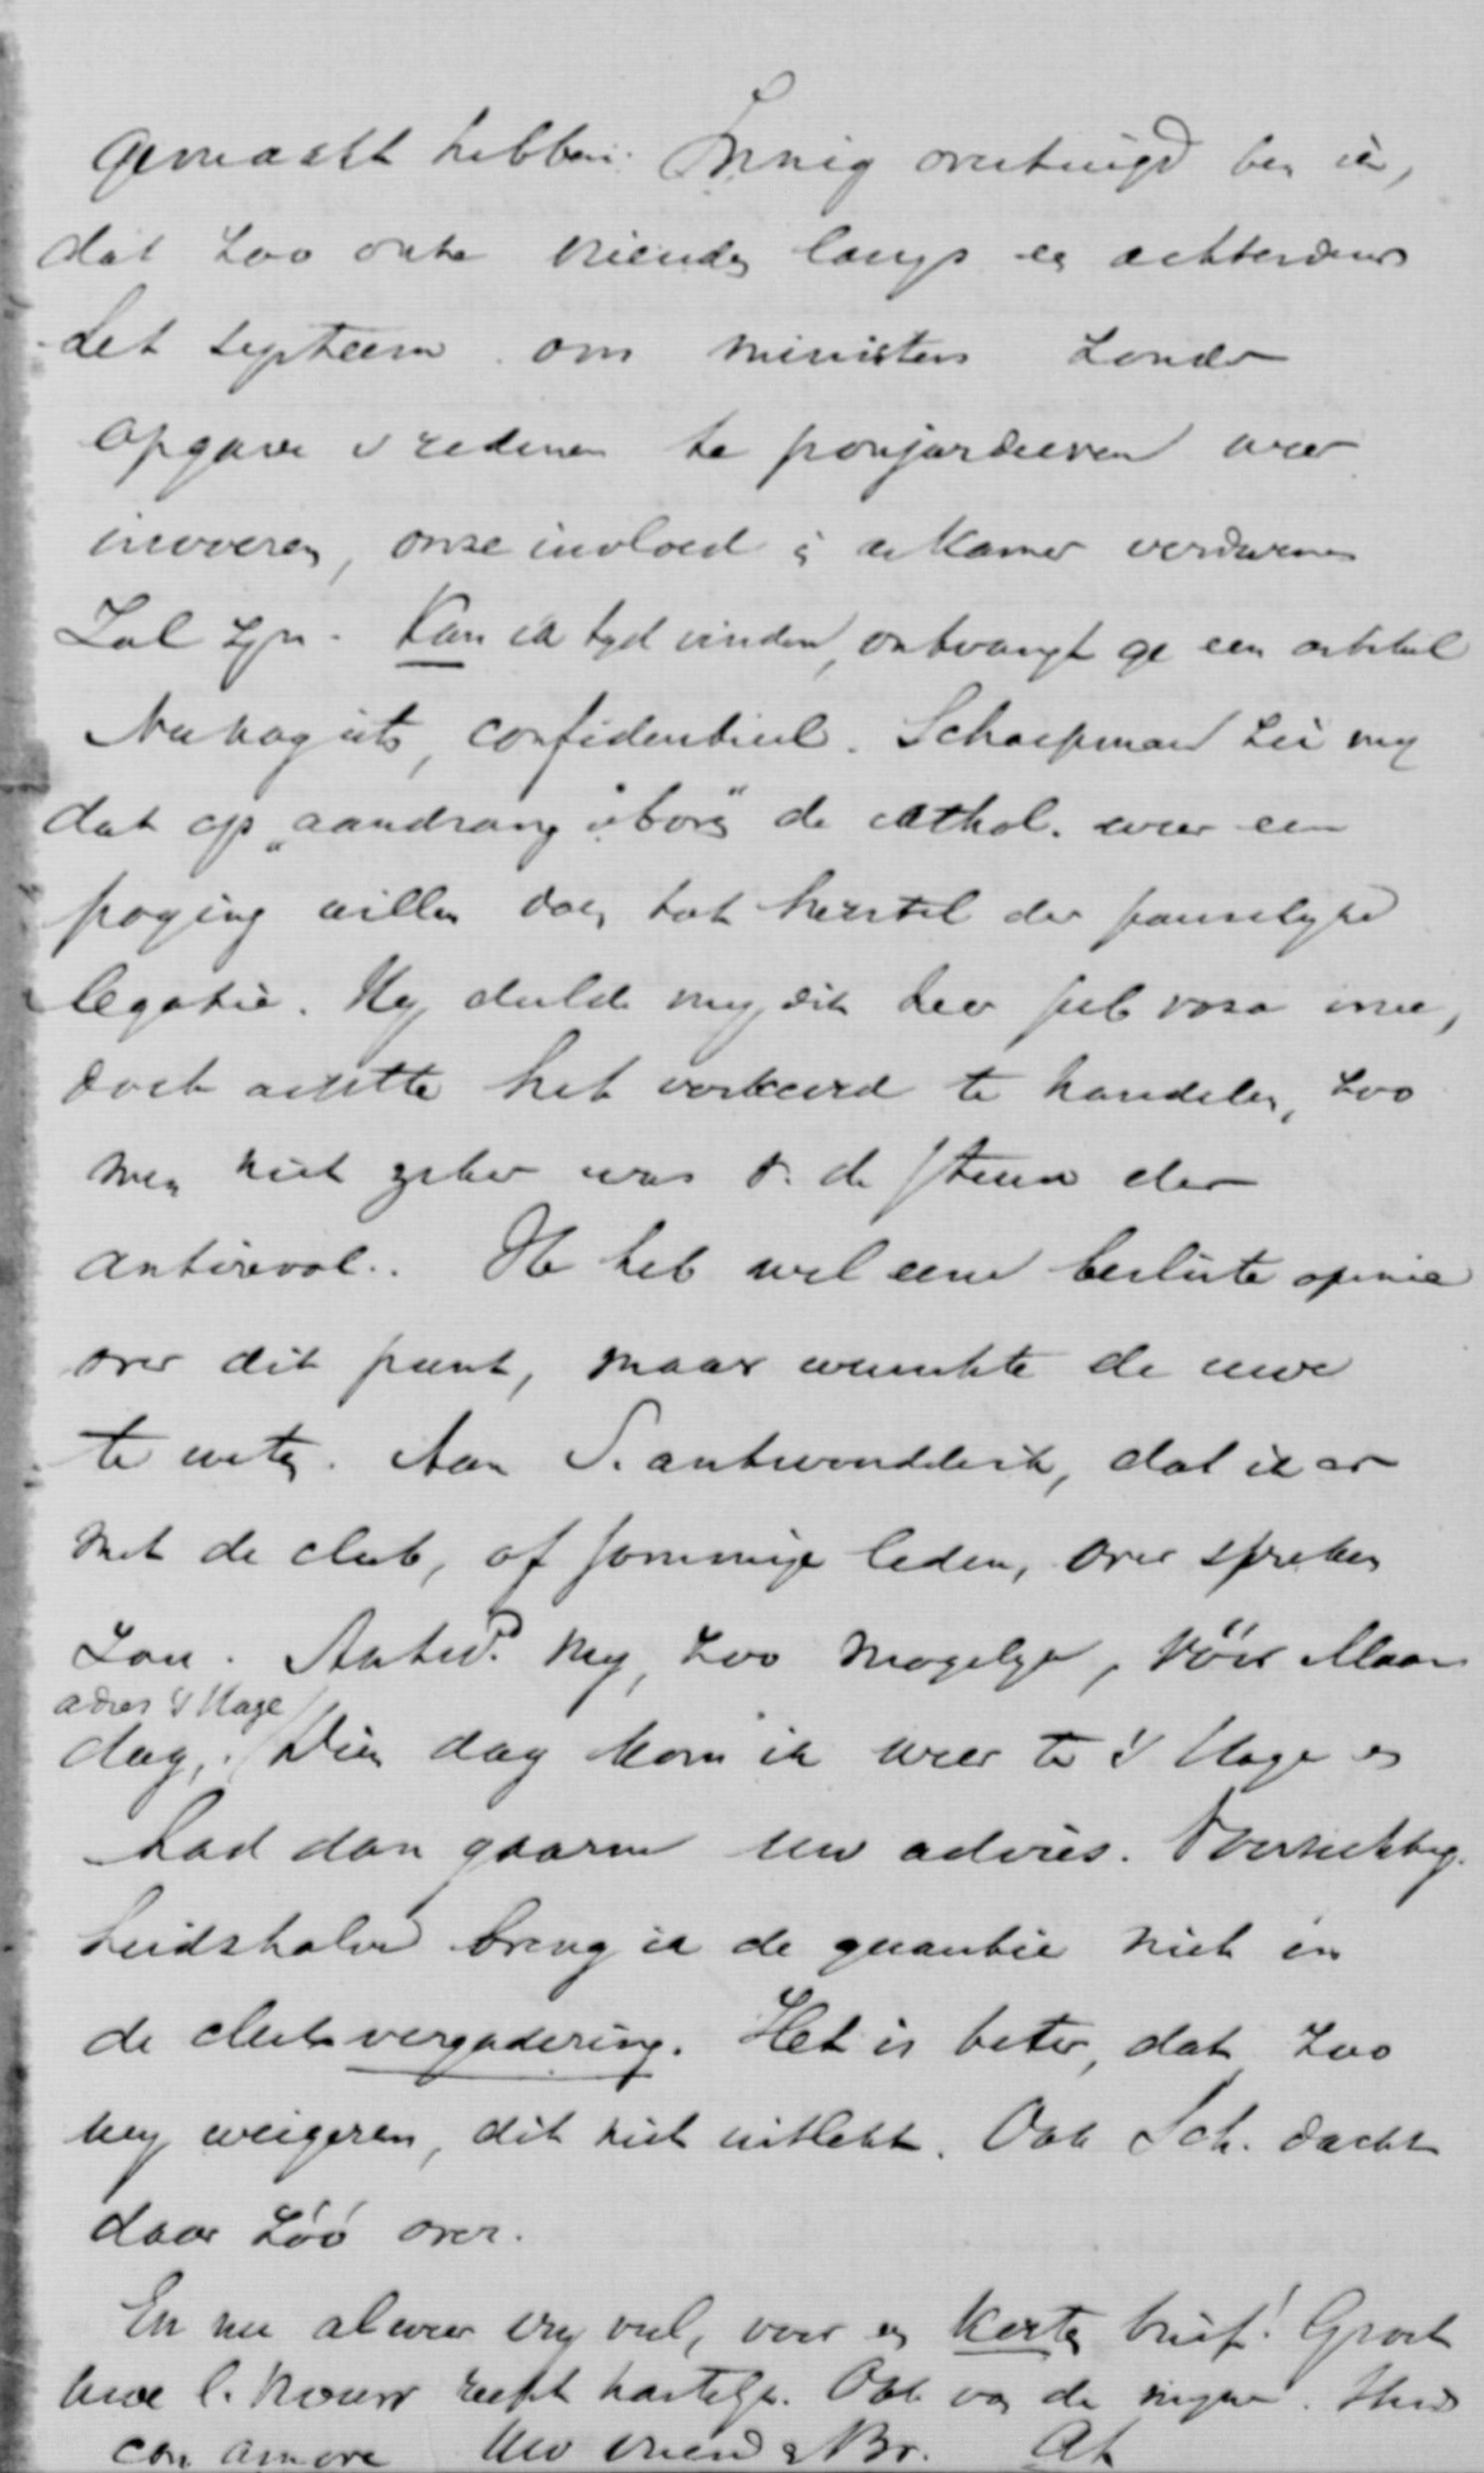 gemaakt hebben. Innig overtuigd ben ik,
dat zoo onze vrienden langs een achterdeur
het systeem om ministers zonder
opgave v redenen te ponjardeeren weer
invoeren, onze invloed i de Kamer verdwenen
Zal zyn. Kan ik tyd vinden, ontvangt ge een artikel
confidentieel. Schaepman zei my
dat op „aandrang v boven" de cathol. weer een
poging willen doen tot herstel der pauselyke
legatie. Hy deelde my dit hier sub rosa mee,
doch achtte het verkeerd te handelen, zoo
men niet zeker was v. de steun der
antirevol.. Ik heb wel eene besliste opinie
over dit punt, maar wenschte de uwe
te weten. Aan S. antwoordde ik, dat ik er
met de club, of sommige leden, over spreken
Zou. Antwd. my, zoo mogelyk, vóór Maan
adres 's Hage
dag,. Dien dag kom ik weer te 's Hage en
had dan gaarne uw advies. Voorzichtig-
heidshalve breng ik de quaestie niet in
de clubvergadering. Het is beter, dat zoo
wy weigeren, dit niet uitlekt. Ook Sch. dacht
daar zóó over.
En nu alweer vry veel, voor een korten brief! Groet
uwe l. vrouw recht hartelyk. Ook van de myne.
con amore Uw vriend & Br. AK